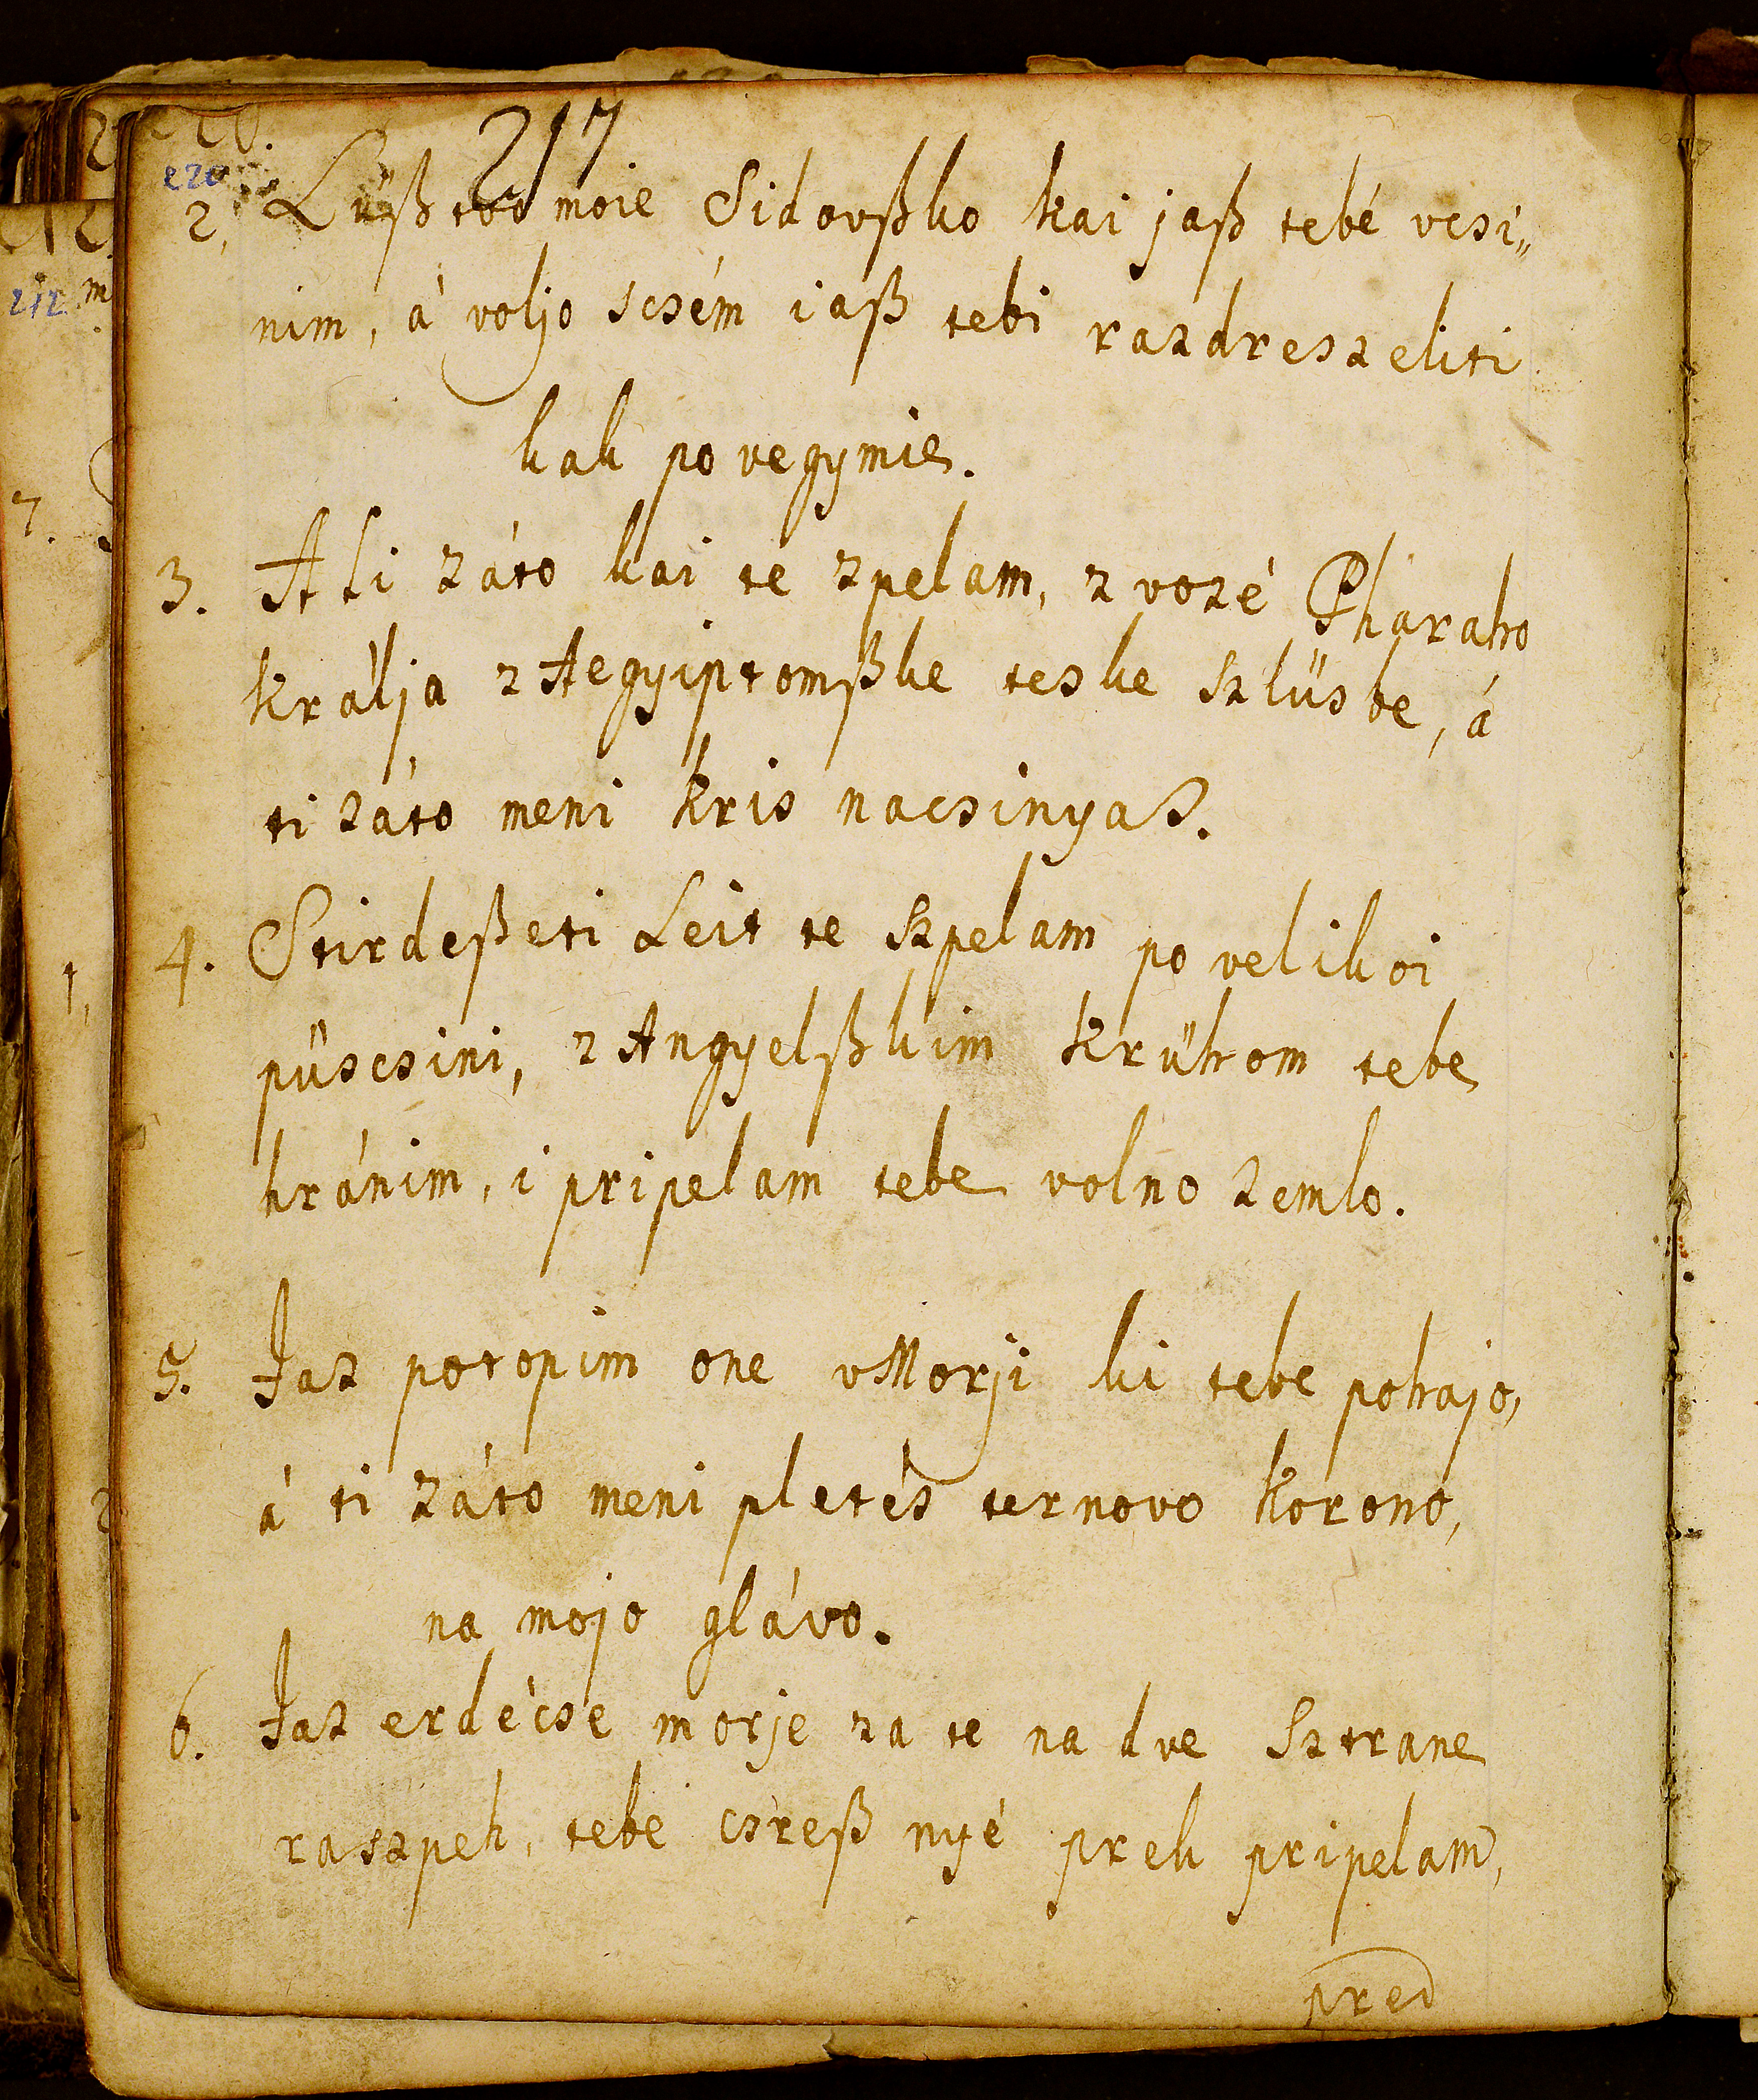 220.
217
220
2. Lüßtvo moie Sidovßko kai jaß tebé vcsi„
nim, á voljo scsém iaß tebi razdreszeliti
kak povegymie.
3. Ali záto kai te zpelam, z vozé Pharaho
králja z Aegyiptomßke teske szlüsbe, á
ti záto meni kris nacsinyas.
4. Stirdeßeti Leit te szpelam po velikoi
püscsini, z Angyelßkim krühom tebe
hránim, i pripelam tebe volno zemlo.
5. Jaz potopim one vMorji ki tebe pohajo,
á ti záto meni pletés ternovo korono,
na mojo glávo.
6. Jaz erdécse morje za te na dve sztrane
raszpeh, tebe csreß nyé prek pripelam,
pred
212
m
7.
1,